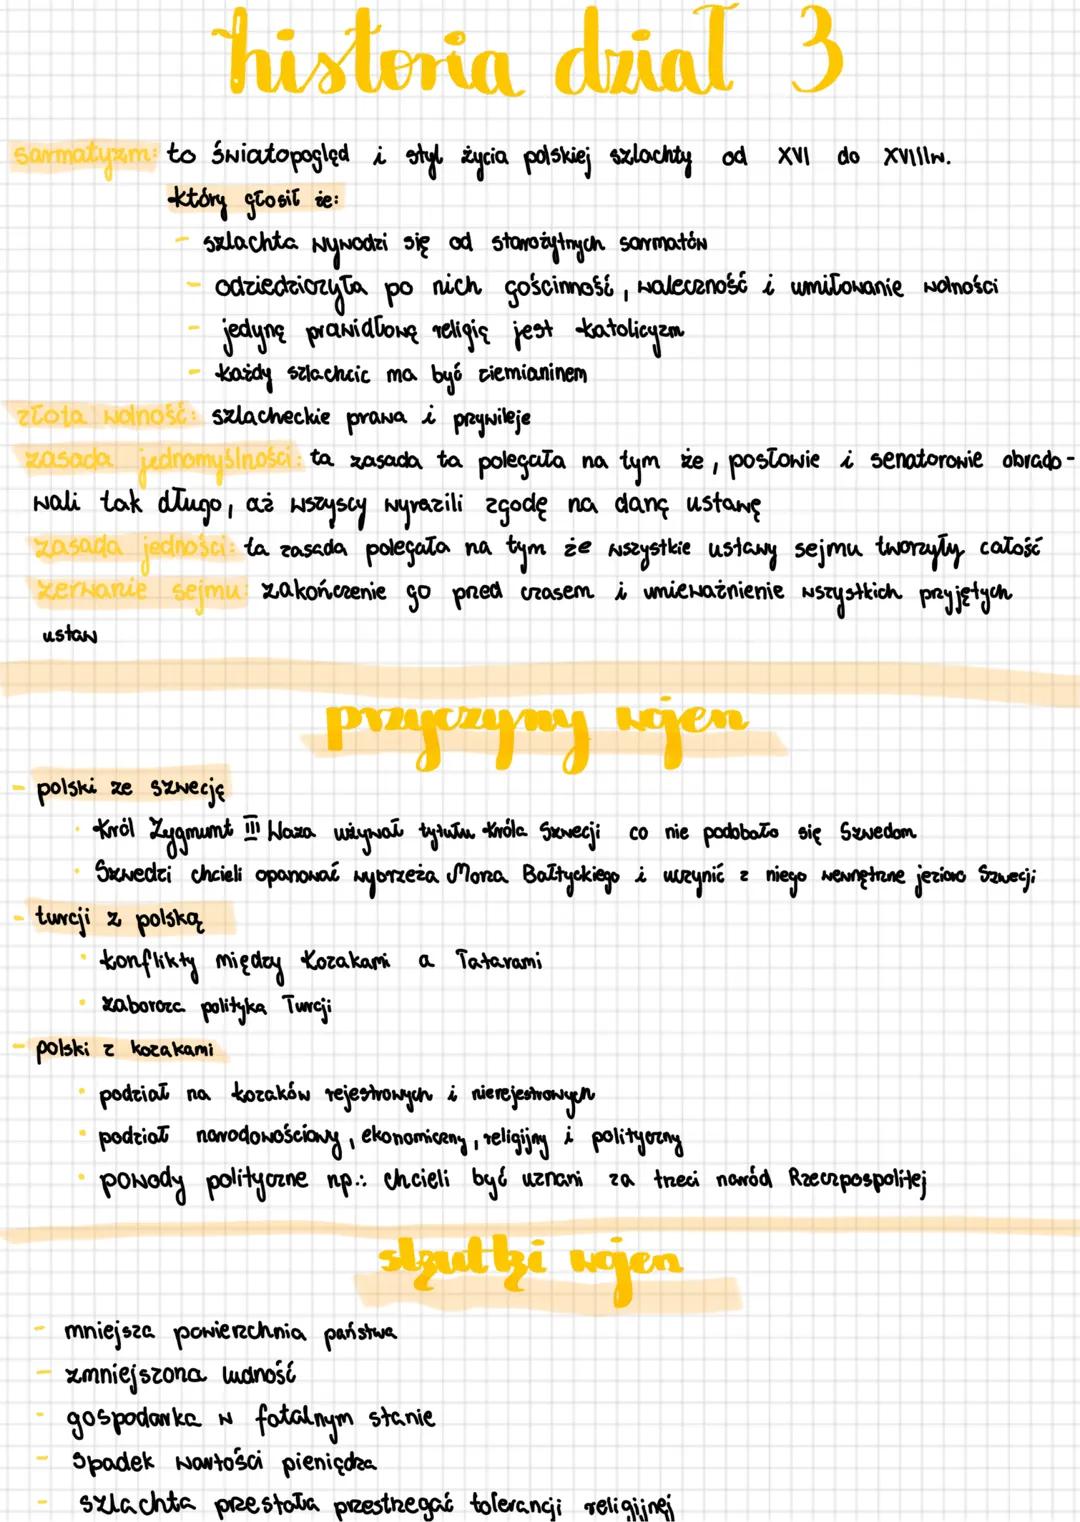 historia dział 3
sarmatyzm: to światopogląd i styl życia polskiej szlachty od XVI do XVIIIw.
który głosił że:
- szlachta wywodzi się od starożytnych sarmatów
- odziedziczyła po nich gościnność, waleczność i umiłowanie wolności
- jedyną prawidłową religią jest katolicyzm
- każdy szlachcic ma być ziemianinem
złota wolność: szlacheckie prawa i przywileje
zasada jednomyślności: ta zasada ta polegała na tym że, posłowie i senatorowie obrado-
wali tak długo, aż wszyscy wyrazili zgodę na daną ustawę
zasada jedności: ta zasada polegała na tym że wszystkie ustawy sejmu tworzyły całość
zerwanie sejmu: zakończenie go pred czasem i unieważnienie wszystkich pryjętych
ustaw
przyczyny wojen
- polski ze szwecją
· Król Zygmunt III Waza używał tytułu króla Szwecji co nie podobało się Szwedom
· Szwedzi chcieli opanować wybrzeża Morza Bałtyckiego i uczynić z niego wewnętrzne jezioro Szwecji
- turcji z polską
· konflikty między Kozakami a Tatarami
· zaborcza polityka Turcji
- polski z kozakami
· podział na kozaków rejestrowych i nierejestrowych
· podział narodowościowy, ekonomiczny, religijny i polityczny
· powody polityczne np.: chcieli być uznani za treci naród Rzeczpospolitej
skutki wojen
- mniejsza powierzchnia państwa
- zmniejszona ludność
- gospodarka w fatalnym stanie
- spadek wartości pieniądza
- szlachta przestała przestrzegać tolerancji religijnej